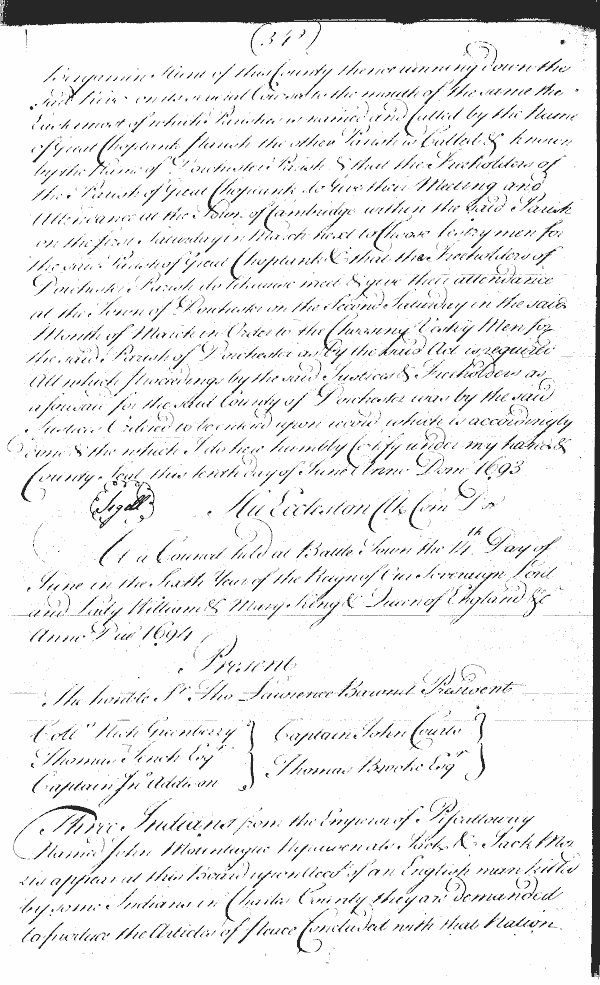 (34)
Benjamin Hunt of this County thence running down the
said River on its several Courses to the mouth of the same the
Eastmost of which Parishes is named and Called by the Name
of Great Choptank Parish the other Parish is Called & known
by the Name of Dorchester Parish & that the Freeholders of
the Parish of Great Choptank do Give their Meeting and
Attendance at the Town of Cambridge within the said Parish
on the first Saturday in March next to Choose Vestry men for
the said Parish of Great Choptank & that the Freeholders of
Dorchester Parish do likewise meet & give their attendance
at the Town of Dorchester on the Second Saturday in the said
Month of March in Order to the Choosing Vestry Men for
the said Parish of Dorchester as by the said Act is required
All which proceedings by the said Justices & Freeholders as
aforesaid for the said County of Dorchester was by the said
Justices Ordered to be enterd upon record which is accordingly
done & the which I do here humbly Certify under my hand &
County Seal this tenth day of June Anno Dom 1693
Sigill Hu Eccleston Clk Com Dor
At a Council held at Battle Town the 14th Day of
June in the Sixth Year of the Reign of Our Sovereign Lord
and Lady William & Mary King & Queen of England &c
Anno Dni 1694
Present
The honble Sr Tho Lawrence Baronet President
Colln Nich Greenberry } Captain John Courts }
Thomas Tench Esqr Thomas Brooke Esqr
Captain Jno Addison
Three Indians from the Emperor of Piscattoway
Named John Mountague Jack & Jack Mor
ris appear at this Board upon Accot of an English man killed
by some Indians in Charles County they are demanded
to produce the Articles of Peace Concluded with that Nation